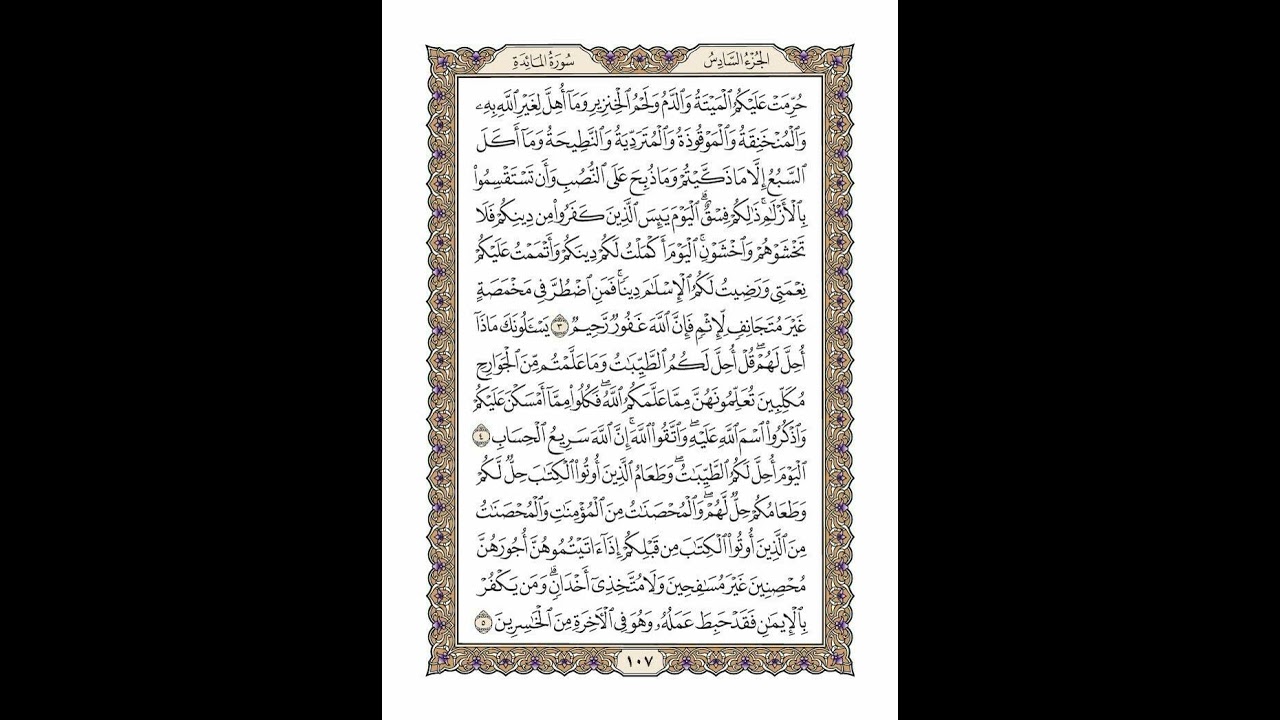 الجُزْءُ السَّادِسُ
سُورَةُ المَائِدَةِ
حُرِّمَتْ عَلَيْكُمُ ٱلْمَيْتَةُ وَٱلدَّمُ وَلَحْمُ ٱلْخِنزِيرِ وَمَآ أُهِلَّ لِغَيْرِ ٱللَّهِ بِهِۦ
وَٱلْمُنْخَنِقَةُ وَٱلْمَوْقُوذَةُ وَٱلْمُتَرَدِّيَةُ وَٱلنَّطِيحَةُ وَمَآ أَكَلَ
ٱلسَّبُعُ إِلَّا مَا ذَكَّيْتُمْ وَمَا ذُبِحَ عَلَى ٱلنُّصُبِ وَأَن تَسْتَقْسِمُوا۟
بِٱلْأَزْلَٰمِ ۚ ذَٰلِكُمْ فِسْقٌ ۗ ٱلْيَوْمَ يَئِسَ ٱلَّذِينَ كَفَرُوا۟ مِن دِينِكُمْ فَلَا
تَخْشَوْهُمْ وَٱخْشَوْنِ ۚ ٱلْيَوْمَ أَكْمَلْتُ لَكُمْ دِينَكُمْ وَأَتْمَمْتُ عَلَيْكُمْ
نِعْمَتِى وَرَضِيتُ لَكُمُ ٱلْإِسْلَٰمَ دِينًا ۚ فَمَنِ ٱضْطُرَّ فِى مَخْمَصَةٍ
غَيْرَ مُتَجَانِفٍ لِّإِثْمٍ ۙ فَإِنَّ ٱللَّهَ غَفُورٌ رَّحِيمٌ ٣ يَسْـَٔلُونَكَ مَاذَآ
أُحِلَّ لَهُمْ ۖ قُلْ أُحِلَّ لَكُمُ ٱلطَّيِّبَٰتُ ۙ وَمَا عَلَّمْتُم مِّنَ ٱلْجَوَارِحِ
مُكَلِّبِينَ تُعَلِّمُونَهُنَّ مِمَّا عَلَّمَكُمُ ٱللَّهُ ۖ فَكُلُوا۟ مِمَّآ أَمْسَكْنَ عَلَيْكُمْ
وَٱذْكُرُوا۟ ٱسْمَ ٱللَّهِ عَلَيْهِ ۖ وَٱتَّقُوا۟ ٱللَّهَ ۚ إِنَّ ٱللَّهَ سَرِيعُ ٱلْحِسَابِ ٤
ٱلْيَوْمَ أُحِلَّ لَكُمُ ٱلطَّيِّبَٰتُ ۖ وَطَعَامُ ٱلَّذِينَ أُوتُوا۟ ٱلْكِتَٰبَ حِلٌّ لَّكُمْ
وَطَعَامُكُمْ حِلٌّ لَّهُمْ ۖ وَٱلْمُحْصَنَٰتُ مِنَ ٱلْمُؤْمِنَٰتِ وَٱلْمُحْصَنَٰتُ
مِنَ ٱلَّذِينَ أُوتُوا۟ ٱلْكِتَٰبَ مِن قَبْلِكُمْ إِذَآ ءَاتَيْتُمُوهُنَّ أُجُورَهُنَّ
مُحْصِنِينَ غَيْرَ مُسَٰفِحِينَ وَلَا مُتَّخِذِىٓ أَخْدَانٍ ۗ وَمَن يَكْفُرْ
بِٱلْإِيمَٰنِ فَقَدْ حَبِطَ عَمَلُهُۥ وَهُوَ فِى ٱلْءَاخِرَةِ مِنَ ٱلْخَٰسِرِينَ ٥
١٠٧